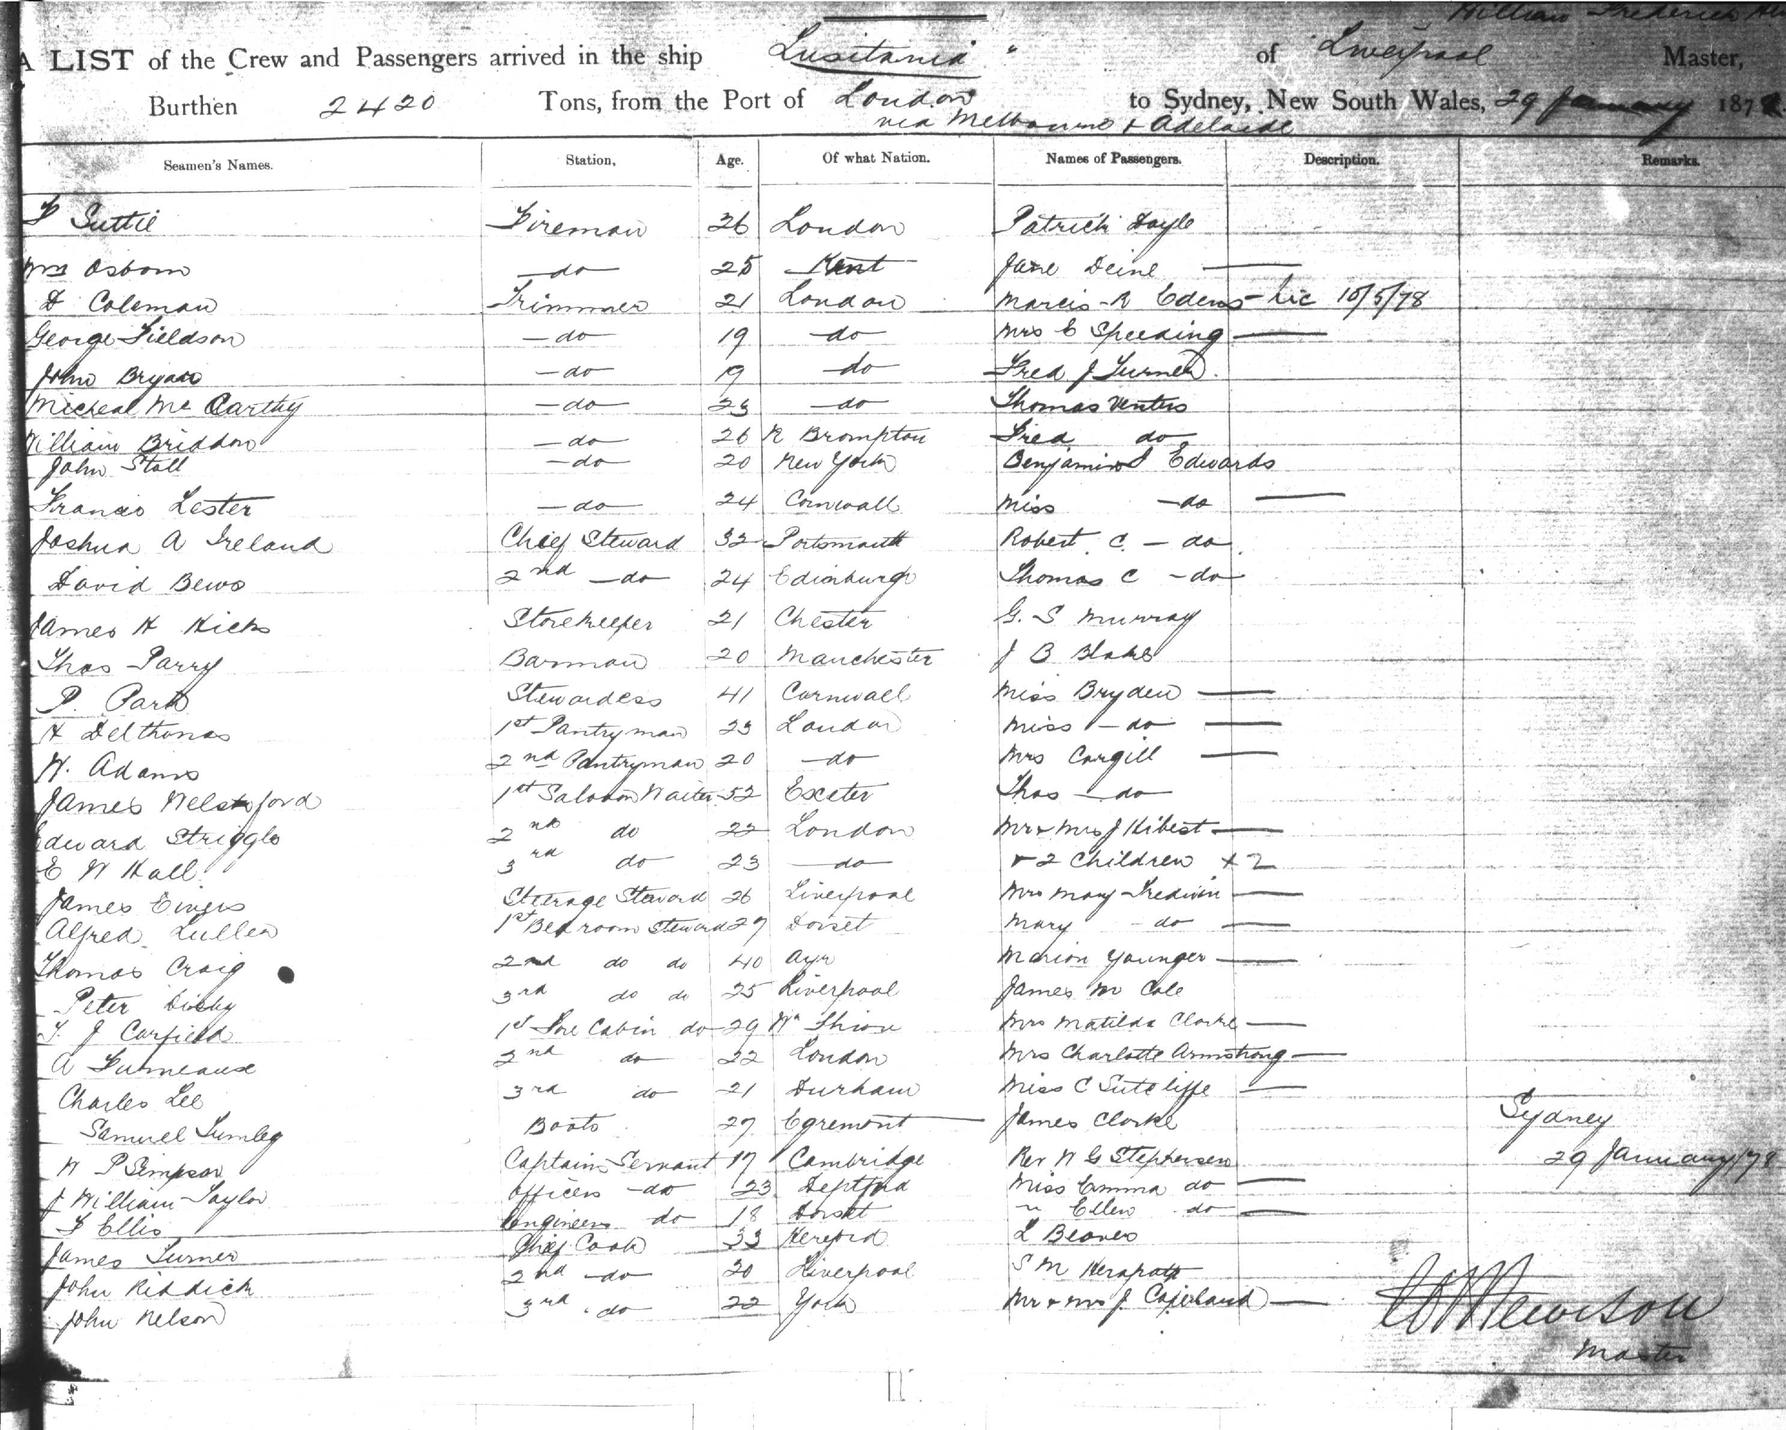 William Frederick
A LIST of the Crew and Passengers arrived in the ship "Lusitania" of Liverpool Master,
Burthen 2420 Tons, from the Port of London to Sydney, New South Wales, 29 January 1878
via Melbourne & Adelaide
Seamen's Names. Station, Age. Of what Nation. Names of Passengers. Description. Remarks.
F Suttie Fireman 26 London Patrick Doyle
Wm Osborn —do 25 Kent Jane Deine —
D Coleman Trimmer 21 London Marcis R Edens — lic 10/5/78
George Fieldson —do 19 —do Mrs E Speeding —
John Bryan —do 19 —do Fred J Turner.
Micheal Mc Carthy —do 23 —do Thomas Venters
William Briddon —do 26 N Brompton Fred do
John Stoll —do 20 New York Benjamin J Edwards
Francis Lester —do 24 Cornwall Miss —do —
Joshua A Ireland Chief Steward 32 Portsmouth Robert C. — do
David Bews 2nd —do 24 Edinburgh Thomas C —do
James H Hicks Storekeeper 21 Chester G. S Murray
Thos Parry Barman 20 Manchester J B Blake
P. Park Stewardess 41 Cornwall Miss Bryden —
H Delthonas 1st Pantryman 23 London Miss —do —
W. Adams 2nd Pantryman 20 —do Mrs Cargill —
James Welsford 1st Saloon Waiter 52 Exeter Thos —do
Edward Striggls 2nd do 22 London Mr & Mrs J Hibest —
E W Hall 3rd do 23 —do & 2 Children + 2
James Steerage Steward 26 Liverpool Mrs Mary Tredwin —
Alfred Lullen 1st Bedroom Steward 27 Dorset Mary do —
Thomas Craig 2nd do do 40 Ayr Marion Younger —
Peter 3rd do do 25 Liverpool James M Cole
T. J Corfield 1st Fore Cabin do 29 Mrs Matilda Clarke —
A Furneaux 2nd do 22 London Mrs Charlotte Armstrong —
Charles Lee 3rd do 21 Durham Miss C Sutcliffe —
Samuel Tumleg Boots 27 Egremont — James Clarke Sydney
W P Simpson Captains Servant 17 Cambridge Rev W G Stephensen 29 January/78
J William Taylor Officers —do 23 Deptford Miss Emma do —
F Ellis Engineers do 18 Dorset " Ellen do —
James Turner Chief Cook 33 Hereford L Beaver
John Riddick 2nd —do 20 Liverpool S M Herapath
John Nelson 3rd . do 22 York Mr & Mrs J. Copeland —
Master